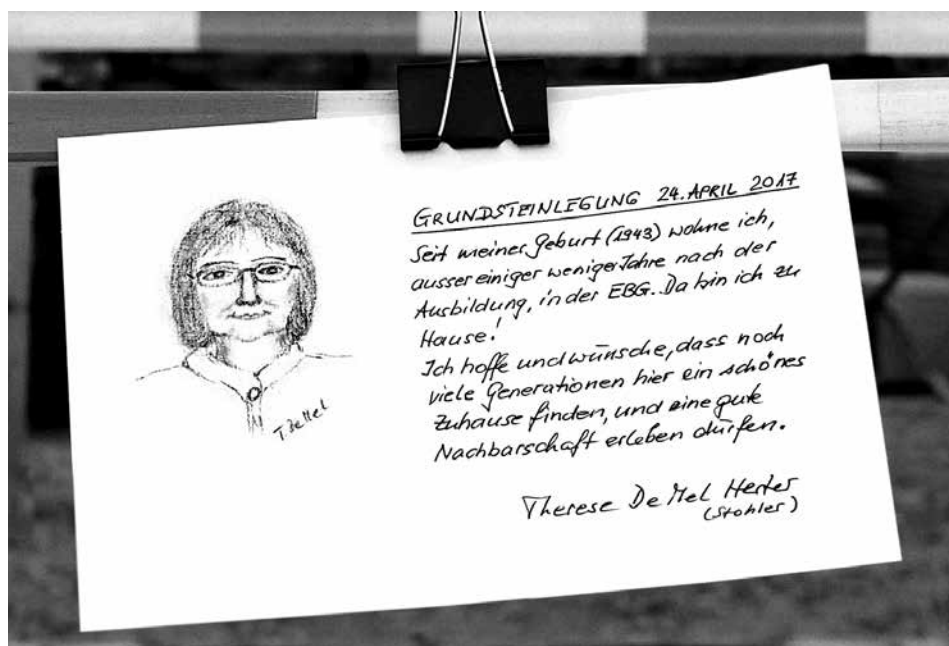 GRUNDSTEINLEGUNG 24. APRIL 2017
Seit meiner Geburt (1943) wohne ich,
ausser einiger weniger Jahre nach der
Ausbildung, in der EBG. Da bin ich zu
Hause!
Ich hoffe und wünsche, dass noch
viele Generationen hier ein schönes
Zuhause finden, und eine gute
Nachbarschaft erleben dürfen.
Therese De Mel Herter
(Stohler)
T. De Mel